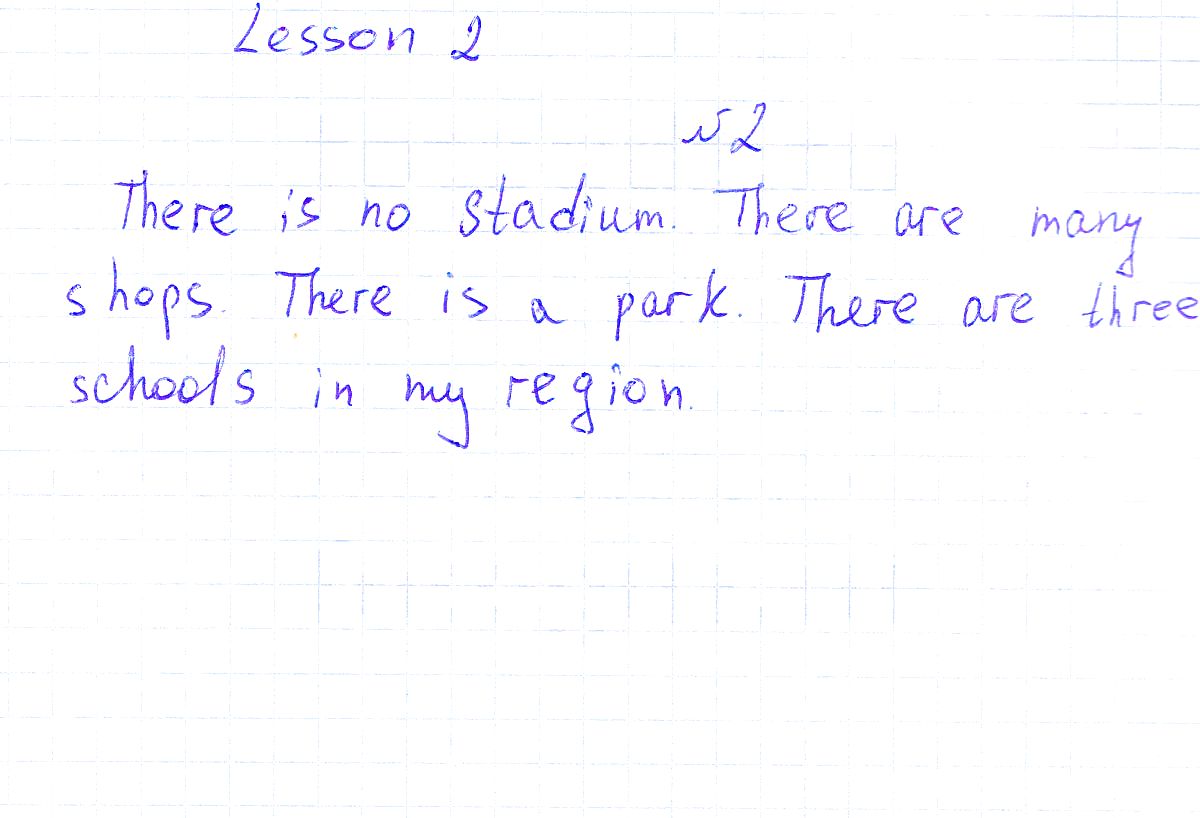 Lesson 2
№2
There is no stadium. There are many
shops. There is a park. There are three
schools in my region.